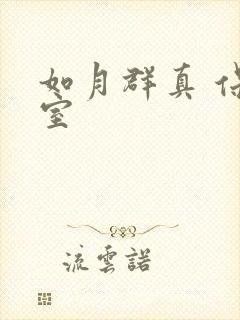 如月群真 保
室
流雲諾